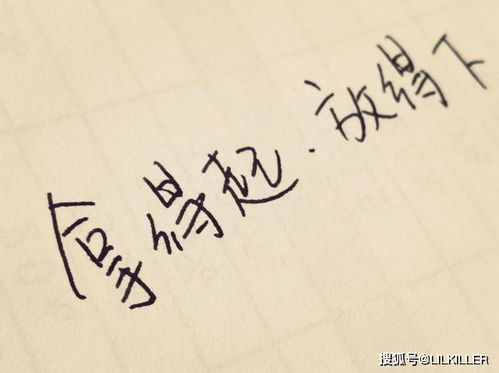 拿得起.放得下
搜狐号@LILKILLER